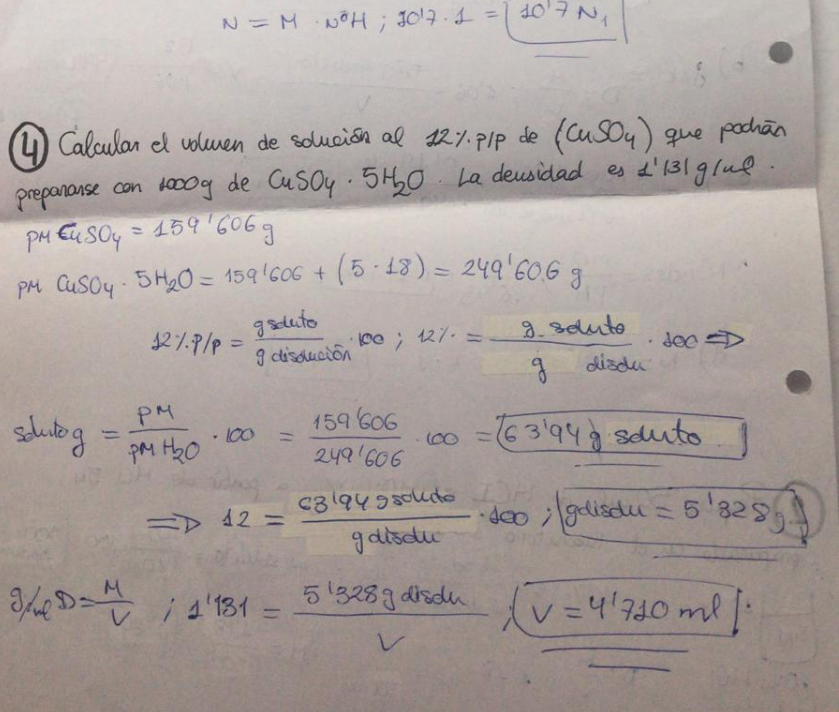 N = M · NºH ; 10'7 · 1 = 10'7 N₁
④ Calcular el volumen de solución al 12%. P/P de (CuSO₄) que podrán
prepararse con 1000g de CuSO₄ · 5H₂O. La densidad es 1'131 g/ml.
PM CuSO₄ = 159'606 g
PM CuSO₄ · 5H₂O = 159'606 + (5 · 18) = 249'606 g
12%. P/P = g soluto / g disolución · 100 ; 12%. = g. soluto / g disolu · 100 ⇒
soluto g = PM / PM H₂O · 100 = 159'606 / 249'606 · 100 = 63'94 g soluto
⇒ 12 = 63'94 g soluto / g disolu · 100 ; g disolu = 5'328 g
g/ml D = M / V ; 1'131 = 5'328 g disolu / V ; V = 4'710 ml